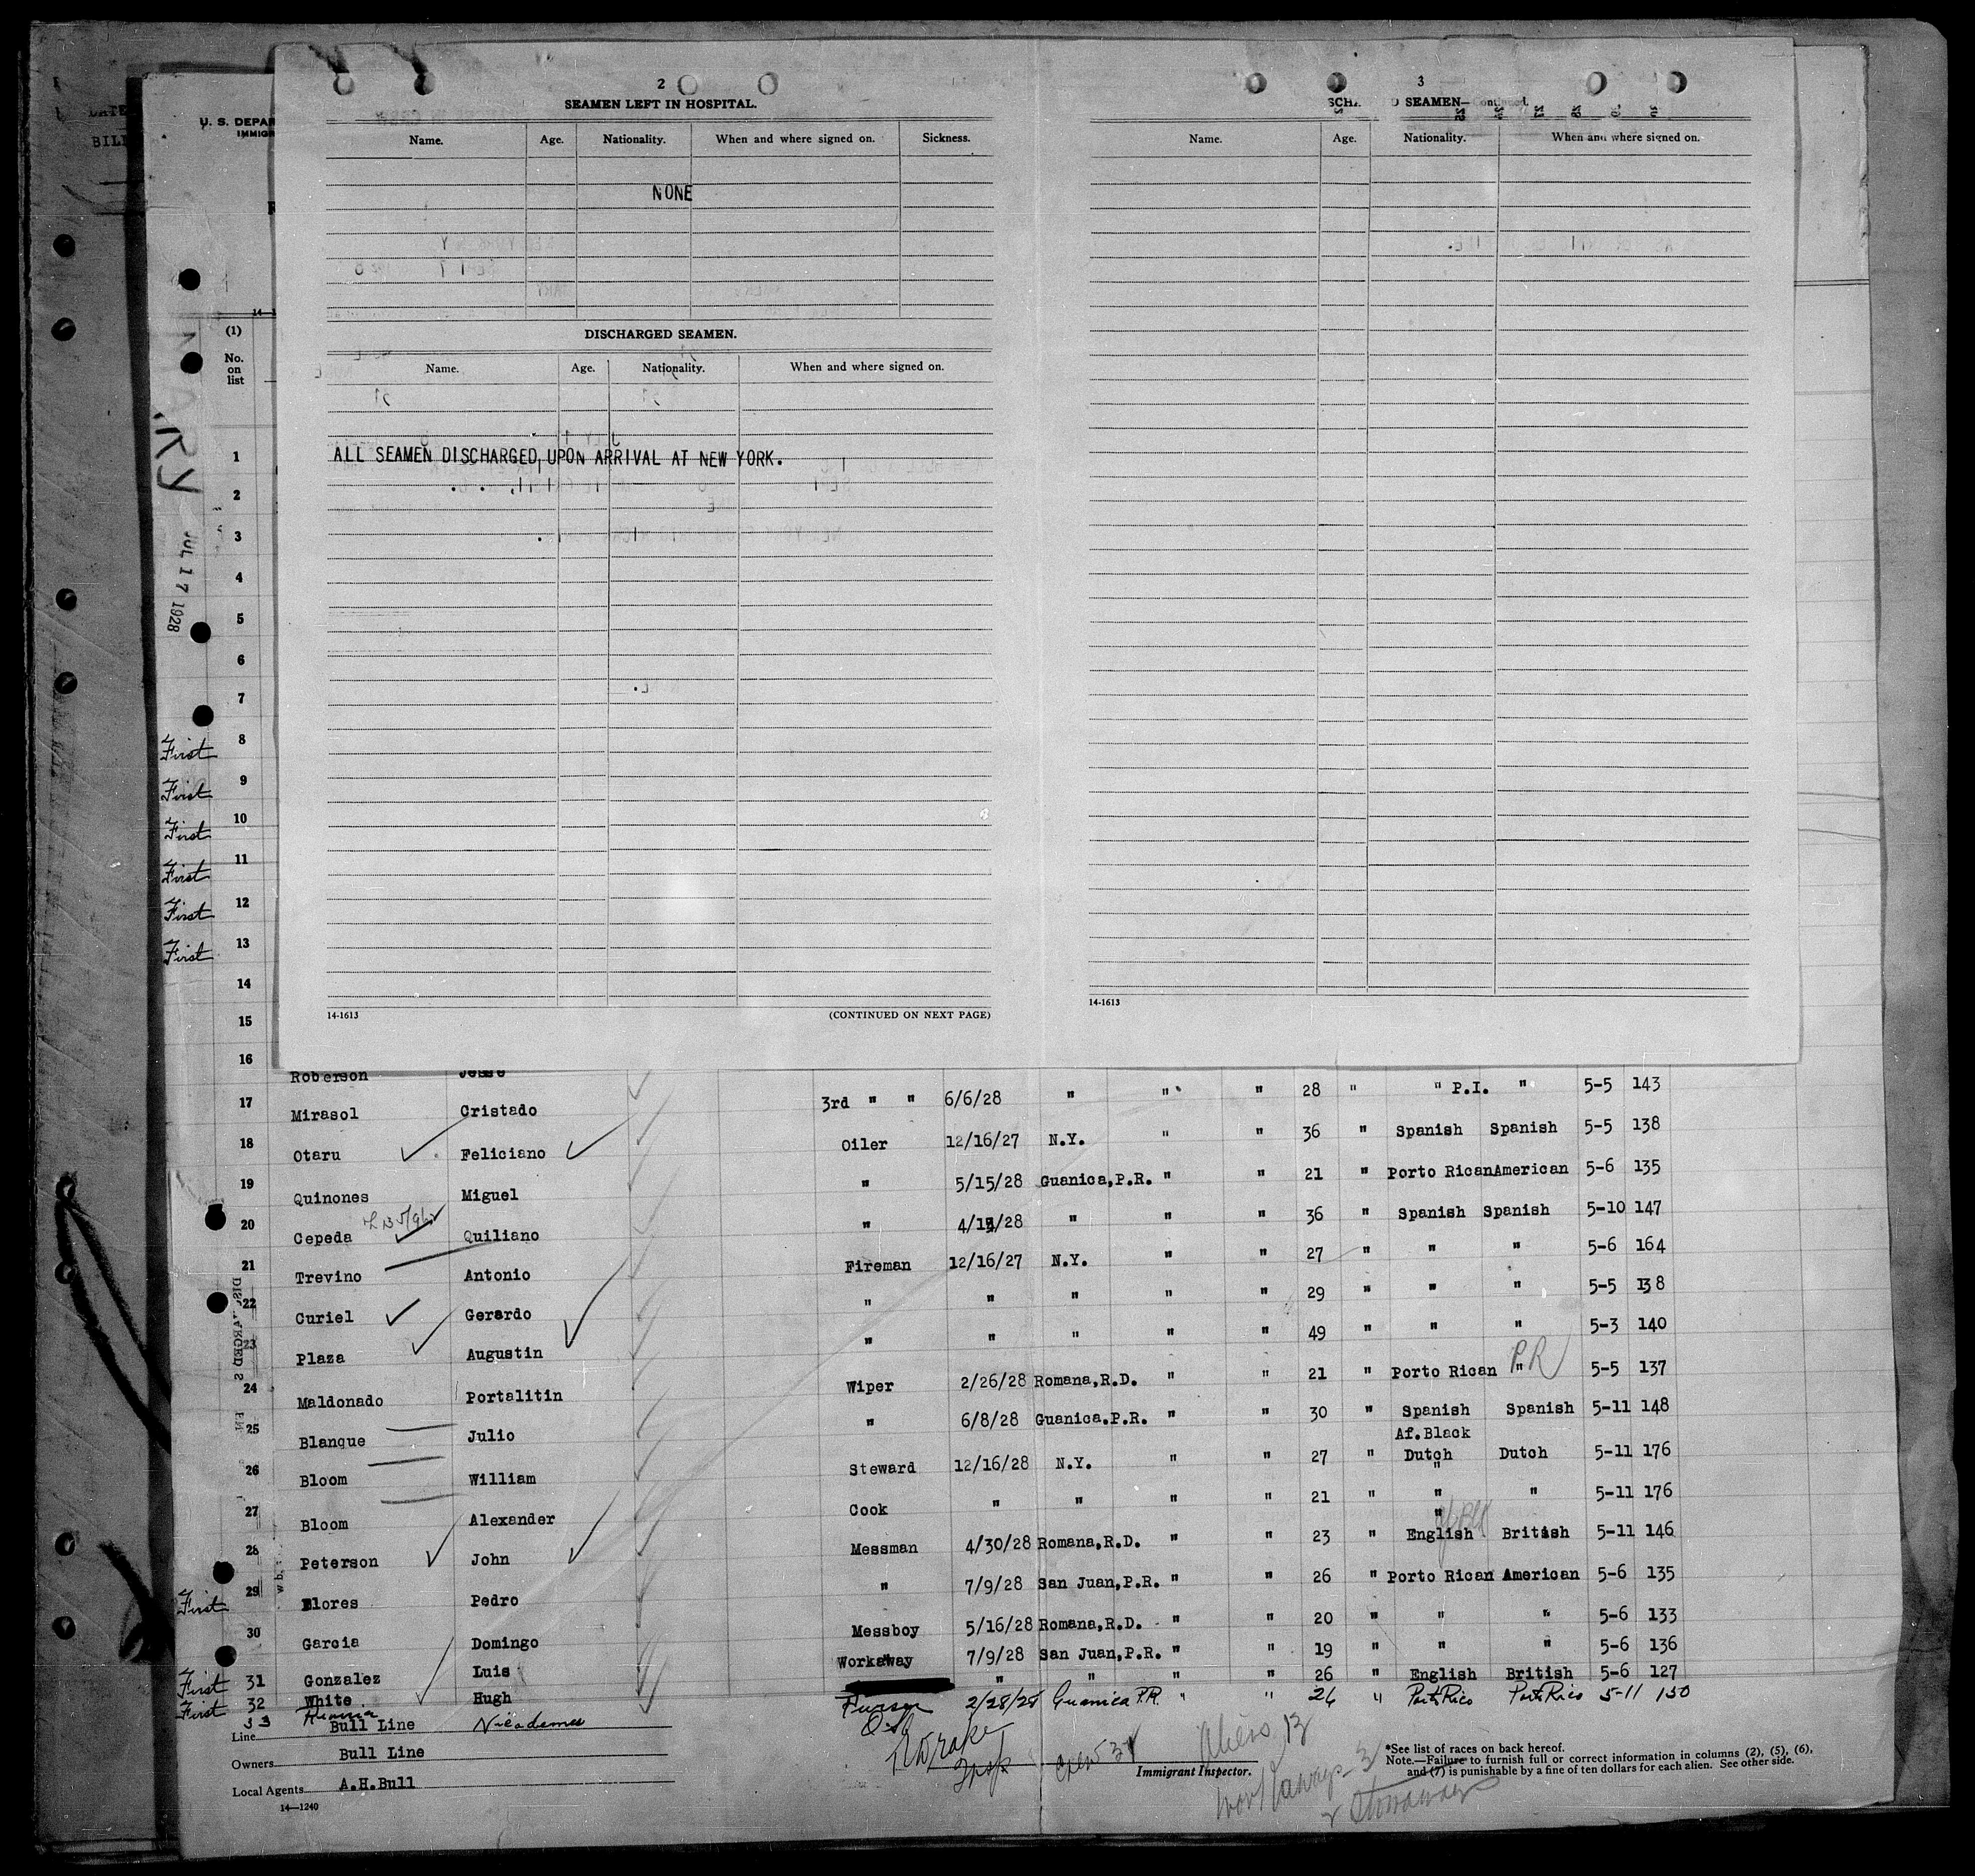 DATE
BILL
U. S. DEPAR
IMMIGR
2
SEAMEN LEFT IN HOSPITAL.
Name. Age. Nationality. When and where signed on. Sickness.
NONE
DISCHARGED SEAMEN.
Name. Age. Nationality. When and where signed on.
ALL SEAMEN DISCHARGED UPON ARRIVAL AT NEW YORK.
14-1613 (CONTINUED ON NEXT PAGE)
3
SEAMEN—Continued.
Name. Age. Nationality. When and where signed on.
14-1613
(1)
No.
on
list
JUL 17 1928
1
2
3
4
5
6
7
First 8
First 9
First 10
First 11
First 12
First 13
14
15
16 Roberson Jesse
17 Mirasol Cristado 3rd " " 6/6/28 " " " 28 " " P.I. " 5-5 143
18 Otaru Feliciano Oiler 12/16/27 N.Y. " " 36 " Spanish Spanish 5-5 138
19 Quinones Miguel " 5/15/28 Guanica,P.R. " " 21 " Porto Rican American 5-6 135
20 Cepeda Quiliano " 4/15/28 " " " 36 " Spanish Spanish 5-10 147
21 Trevino Antonio Fireman 12/16/27 N.Y. " " 27 " " " 5-6 164
22 Curiel Gerardo " " " " " 29 " " " 5-5 138
23 Plaza Augustin " " " " " 49 " " " 5-3 140
24 Maldonado Portalitin Wiper 2/26/28 Romana,R.D. " " 21 " Porto Rican " P.R 5-5 137
25 Blanque Julio " 6/8/28 Guanica.P.R. " " 30 " Spanish Spanish 5-11 148
Af. Black
26 Bloom William Steward 12/16/28 N.Y. " " 27 " Dutch Dutch 5-11 176
"
27 Bloom Alexander Cook " " " " 21 " " " 5-11 176
"
28 Peterson John Messman 4/30/28 Romana,R.D. " " 23 " English British 5-11 146
First 29 Flores Pedro " 7/9/28 San Juan,P.R. " " 26 " Porto Rican American 5-6 135
30 Garcia Domingo Messboy 5/16/28 Romana,R.D. " " 20 " " " 5-6 133
First 31 Gonzalez Luis Workaway 7/9/28 San Juan,P.R. " " 19 " " " 5-6 136
First 32 White Hugh " " " " 26 " English British 5-6 127
33 Nicodemes 2/28/28 Guanica P.R. " " 26 " Porto Rico Porto Rico 5-11 150
Line Bull Line
Owners Bull Line
Local Agents A.H.Bull
14—1240
Drake
Insp
Crew 31
Immigrant Inspector.
Aliens 13
Workaways - 3
2 Stowaways
*See list of races on back hereof.
Note.—Failure to furnish full or correct information in columns (2), (5), (6),
and (7) is punishable by a fine of ten dollars for each alien. See other side.